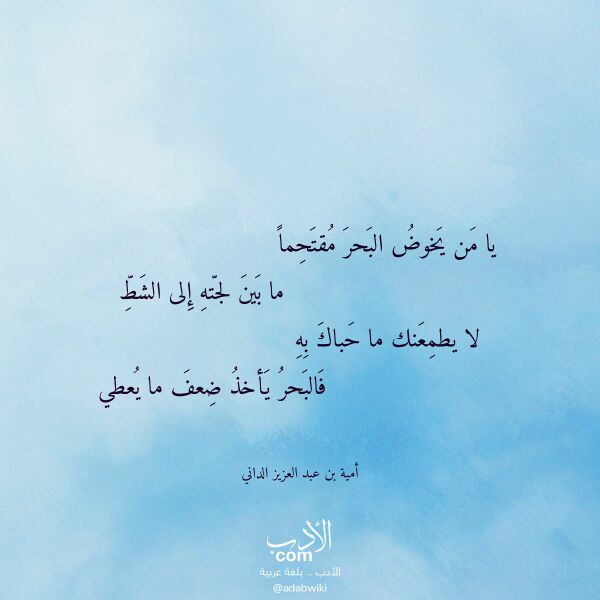 يا مَن يَخوضُ البَحرَ مُقتَحِماً
ما بَينَ لجّتهِ إِلى الشَطِّ
لا يطمِعَنك ما حَباكَ بِهِ
فَالبَحرُ يَأخذُ ضِعفَ ما يُعطي
أمية بن عبد العزيز الداني
الأدب
com
الأدب .. بلغة عربية
@adabwiki